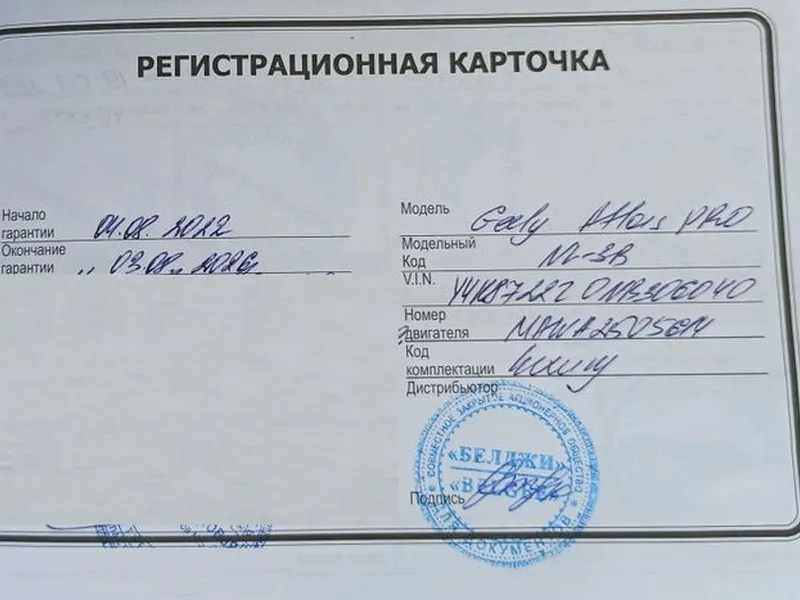 РЕГИСТРАЦИОННАЯ КАРТОЧКА
Начало гарантии 04.08.2022
Окончание гарантии 03.08.2026
Модель Geely Atlas PRO
Модельный Код
V.I.N. Y4K8722Z0NB306040
Номер двигателя
Код комплектации Luxury
Дистрибьютор
СОВМЕСТНОЕ ЗАКРЫТОЕ АКЦИОНЕРНОЕ ОБЩЕСТВО
«БЕЛДЖИ»
Подпись
ДЛЯ ДОКУМЕНТОВ